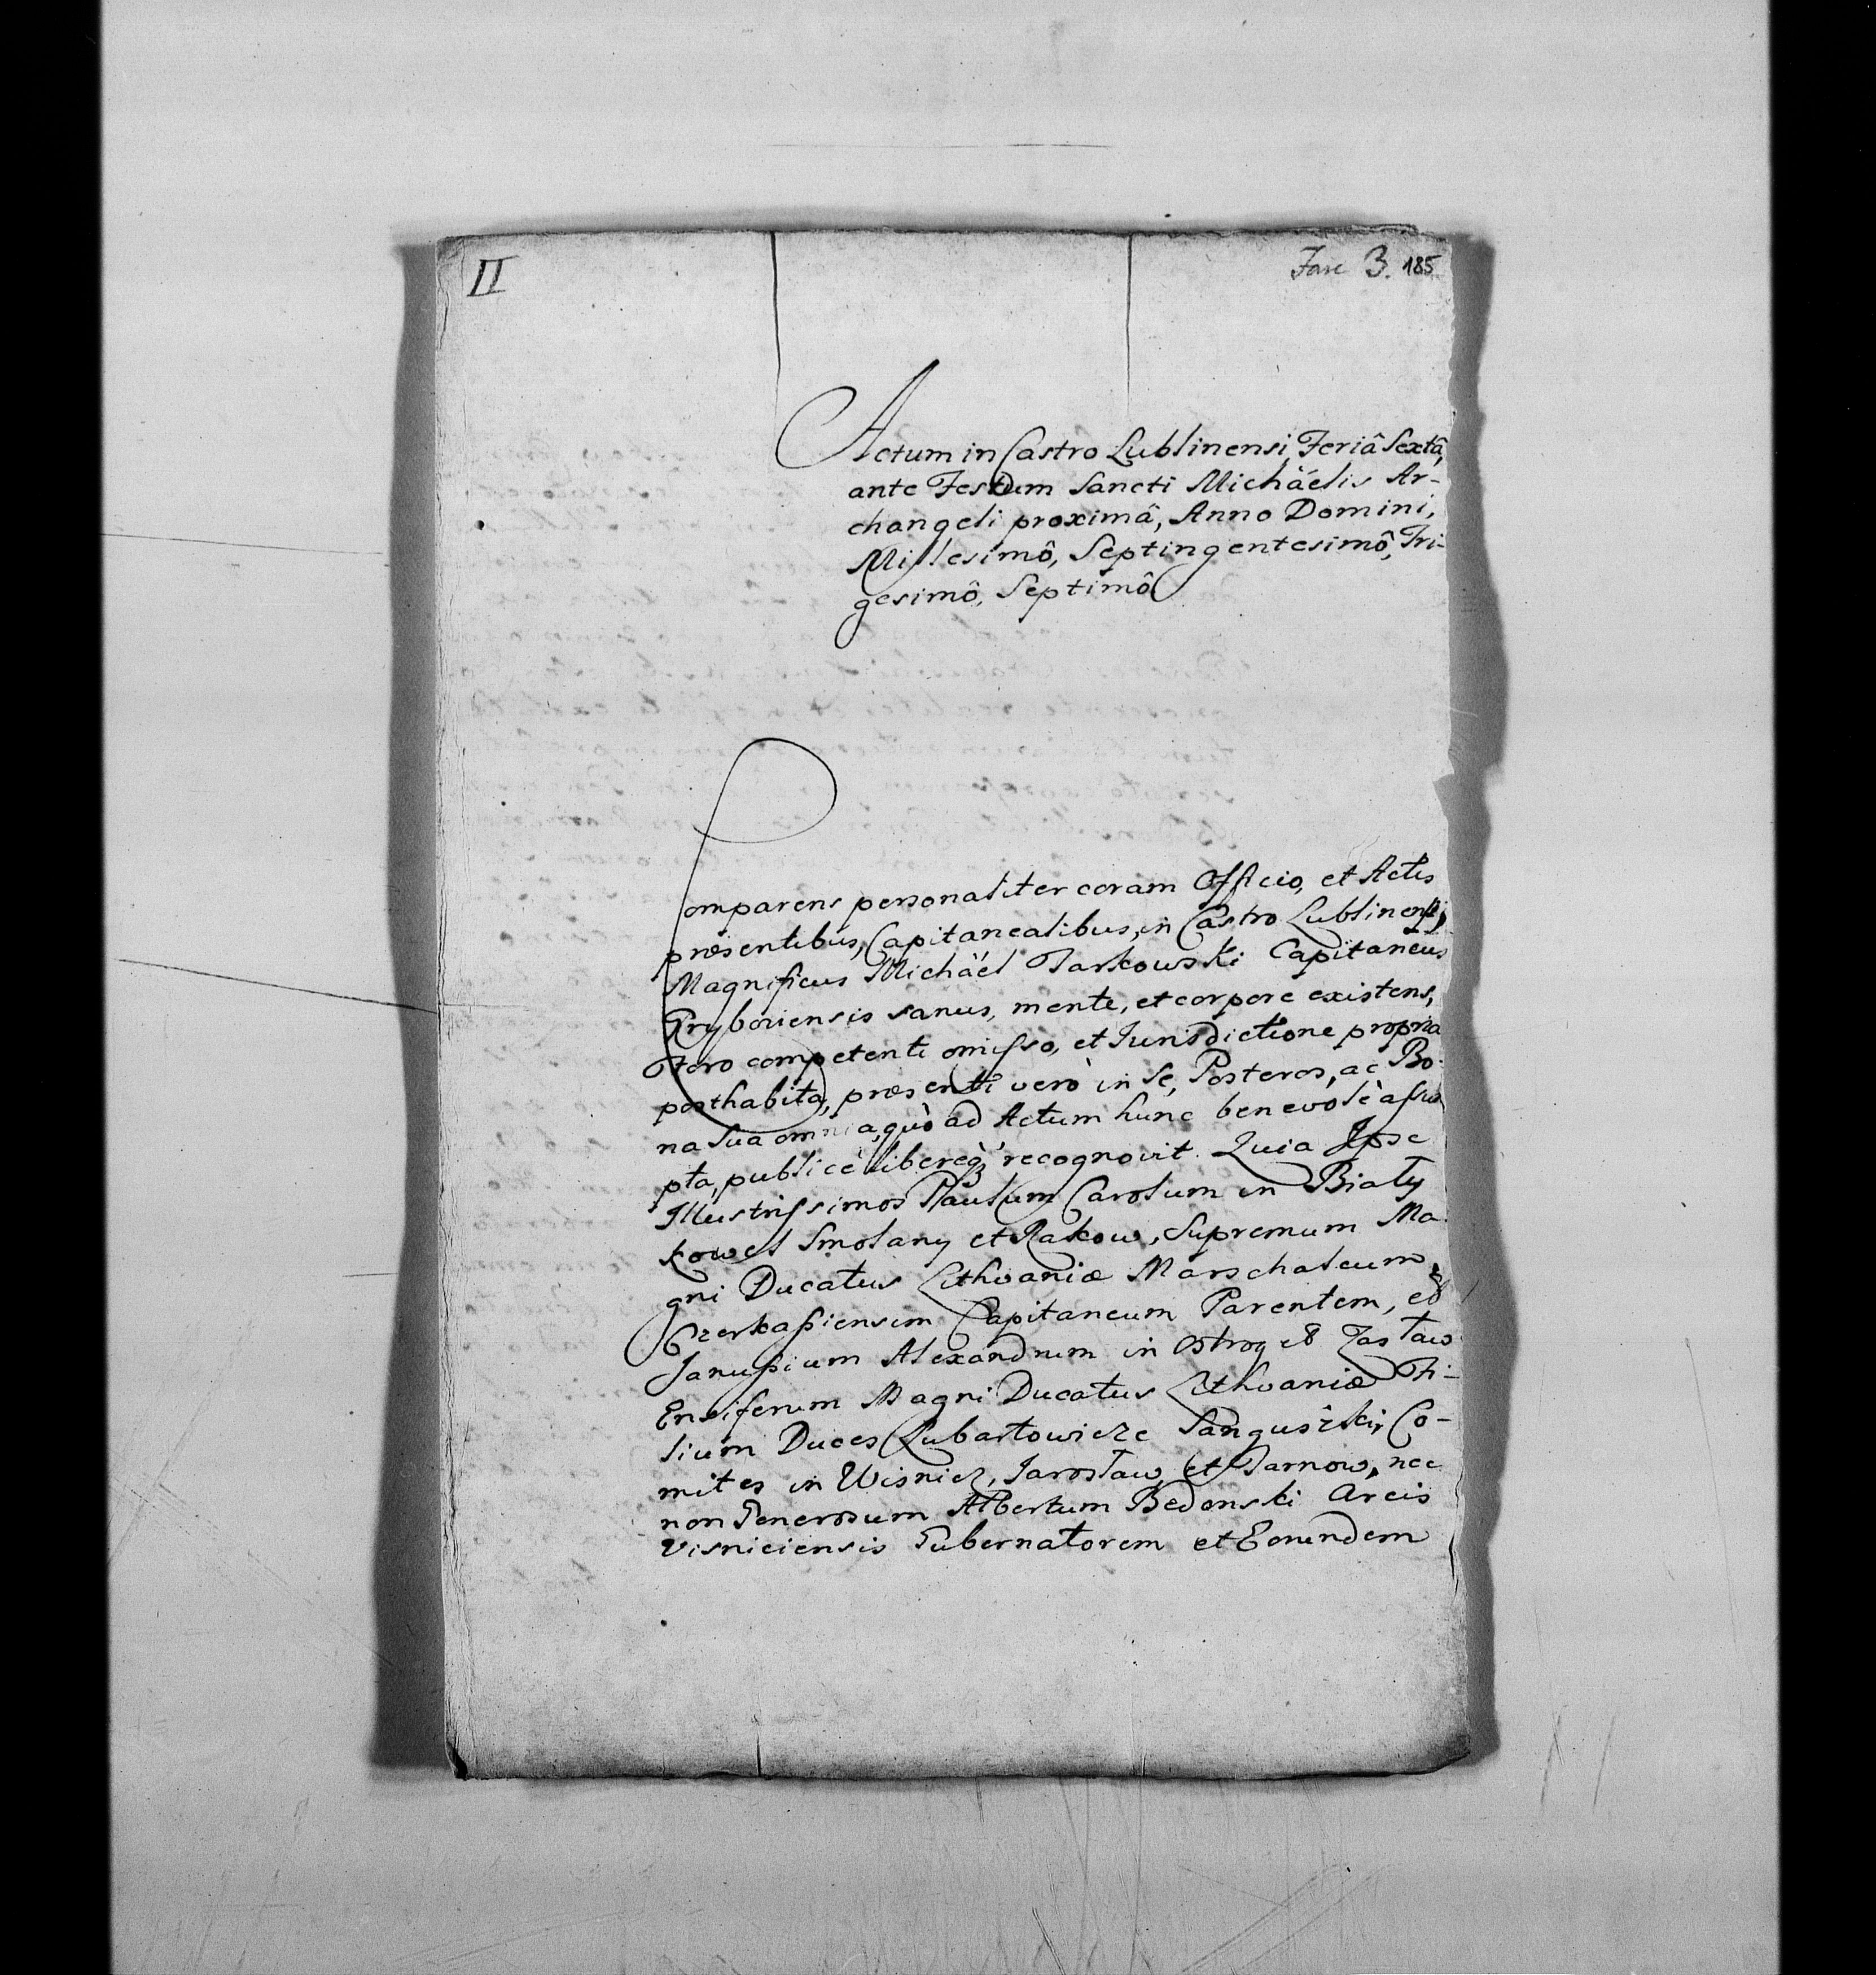 II
Fasc 3. 185
Actum in Castro Lublinensi, Feriâ Sextâ,
ante Festum Sancti Michäélis Ar-
changeli proximâ, Anno Domini,
Millesimô, Septingentesimô, Tri-
gesimô, Septimô
Comparens personaliter coram Officio, et Actis
præsentibus, Capitanealibus, in Castro Lublinensi,
Magnificus Michäél Tarkowski Capitaneus
Gryboviensis sanus, mente, et corpore existens,
Foro competenti omisso, et Iurisdictione propria
posthabita, præsenti verò in se, Posteros, ac Bo-
na sua omnia, quò ad Actum hunc benevolè assum
pta, publicè libereq₃ recognovit. Quia Ipse
Illustrissimos Paulum Carolum in Biały
Kowel Smolany et Rakow, Supremum Ma-
gni Ducatus Lithvaniæ Marschalcum, &
Czerkassiensem Capitaneum Parentem, et
Janussium Alexandrum in Ostrog et Zasław
Ensiferum Magni Ducatus Lithvaniæ Fi-
lium Duces Lubartowicze Sanguszki, Co-
mites in Wisnicz, Jarosław, et Tarnow, nec
non Generosum Albertum Bedonski Arcis
Visniciensis Gubernatorem et Eorundem